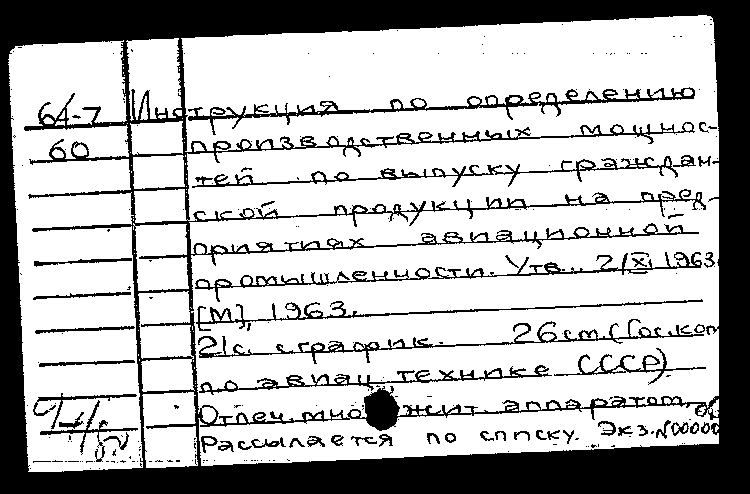 64-7 Инструкция по определению
60 производственных мощнос-
тей по выпуску граждан-
ской продукции на пред-
приятиях авиационной
промышленности. Утв. 2/XI 1963.
[М], 1963.
21с. с график. 26cm. (Гос.ком
по авиац. технике СССР).
Отпеч. множит. аппаратом.
Рассылается по списку. Экз. №00000